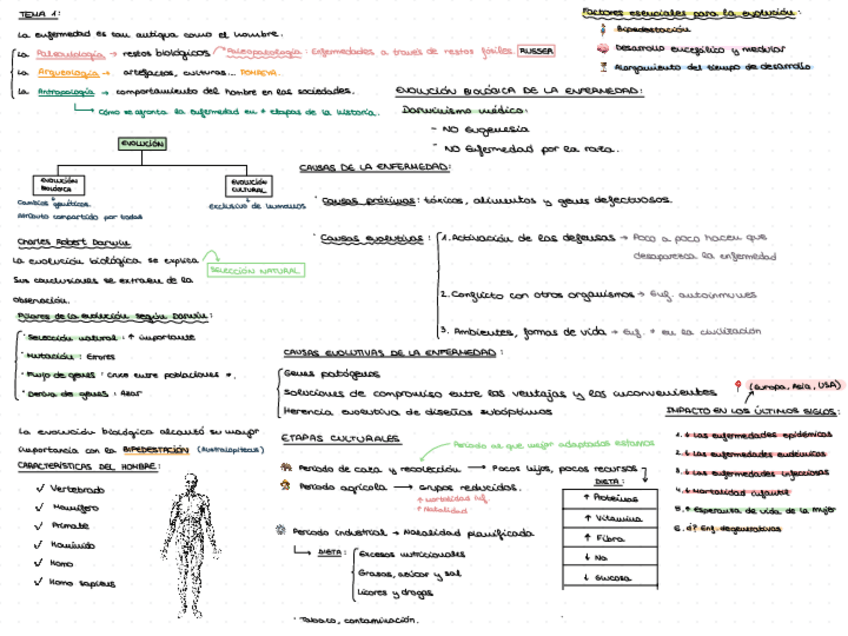 TEMA 1:
La enfermedad es tan antigua como el hombre.
La Paleontología → restos biológicos → Paleopatología: Enfermedades a través de restos fósiles. RUSSER
La Arqueología → artefactos, culturas...
La Antropología → comportamiento del hombre en las sociedades.
↳ Cómo se afronta la enfermedad en ≠ etapas de la historia.
Factores esenciales para la evolución:
Bipedestación
Desarrollo encefálico y medular
Alargamiento del tiempo de desarrollo
EVOLUCIÓN
EVOLUCIÓN BIOLÓGICA
Cambios genéticos.
Atributo compartido por todos
EVOLUCIÓN CULTURAL
exclusivo de humanos
EVOLUCIÓN BIOLÓGICA DE LA ENFERMEDAD:
Darwinismo médico:
- NO Eugenesia
- NO Enfermedad por la raza.
CAUSAS DE LA ENFERMEDAD:
· Causas próximas: tóxicos, alimentos y genes defectuosos.
· Causas evolutivas:
1. Activación de las defensas → Poco a poco hacen que
desaparezca la enfermedad
2. Conflicto con otros organismos → Enf. autoinmunes
3. Ambientes, formas de vida → Enf. + en la civilización
Charles Robert Darwin
La evolución biológica se explica
SELECCIÓN NATURAL
Sus conclusiones se extraen de la
observación.
Pilares de la evolución según Darwin:
· Selección natural: ↑ importante
· Mutación: Errores
· Flujo de genes: cruce entre poblaciones ≠.
· Deriva de genes: Azar
La evolución biológica alcanzó su mayor
importancia con la BIPEDESTACIÓN (Australopitecus)
CARACTERÍSTICAS DEL HOMBRE:
✓ Vertebrado
✓ Mamífero
✓ Primate
✓ Homínido
✓ Homo
✓ Homo sapiens
CAUSAS EVOLUTIVAS DE LA ENFERMEDAD:
Genes patógenos
Soluciones de compromiso entre las ventajas y los inconvenientes
Herencia evolutiva de diseños subóptimos
ETAPAS CULTURALES
Período al que mejor adaptados estamos
Período de caza y recolección → Pocos hijos, pocos recursos
Período agrícola → Grupos reducidos.
↑ Mortalidad inf.
↑ Natalidad
Período industrial → Natalidad planificada
↳ DIETA:
Excesos nutricionales
Grasas, azúcar y sal
Licores y drogas
· Tabaco, contaminación.
DIETA:
↑ Proteínas
↑ Vitamina
↑ Fibra
↓ Na
↓ Glucosa
(Europa, Asia, USA)
IMPACTO EN LOS ÚLTIMOS SIGLOS:
1. ↓ Las enfermedades epidémicas
2. ↓ Las enfermedades endémicas
3. ↓ Las enfermedades infecciosas
4. ↓ Mortalidad infantil
5. ↑ Esperanza de vida de la mujer
6. Enf. degenerativas